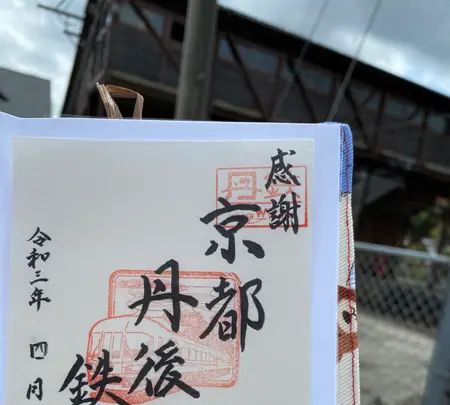 感謝
京都
丹後
鉄
令和三年 四月